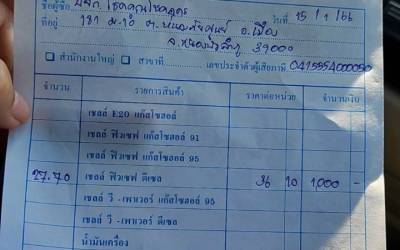 ชื่อผู้ซื้อ หจก. โชคคูณโชคถาวร วันที่ 15 / 1 / 66
ที่อยู่ 181 ม.10 ต.หนองบัว อ.เมือง
จ.หนองบัวลำภู 39000
สำนักงานใหญ่ สาขาที่ เลขประจำตัวผู้เสียภาษี 0415554000050
จำนวน รายการสินค้า ราคาต่อหน่วย จำนวนเงิน
เชลล์ E20 แก๊สโซฮอล์
เชลล์ ฟิวเซฟ แก๊สโซฮอล์ 91
เชลล์ ฟิวเซฟ แก๊สโซฮอล์ 95
27.70 เชลล์ ฟิวเซฟ ดีเซล 36 10 1,000 -
เชลล์ วี -เพาเวอร์ แก๊สโซฮอล์ 95
เชลล์ วี -เพาเวอร์ ดีเซล
น้ำมันเครื่อง